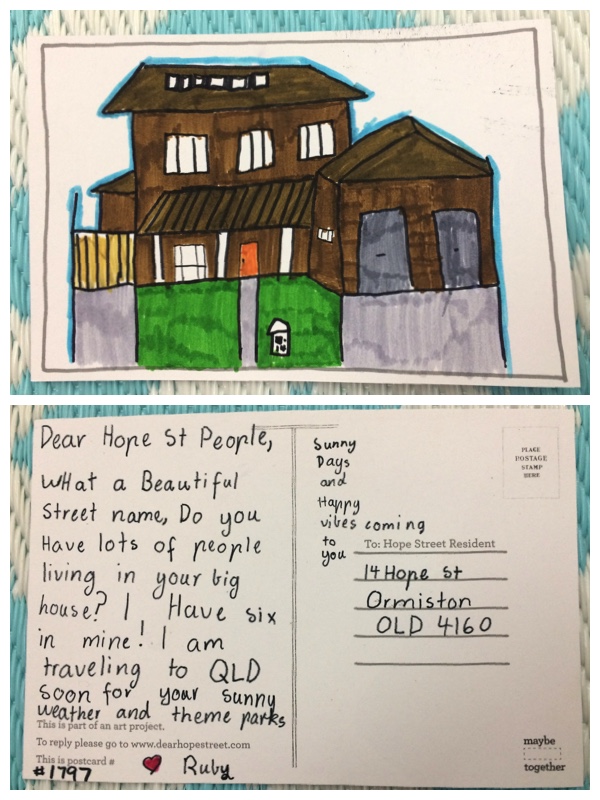 Dear Hope St People,
What a Beautiful
Street name, Do you
Have lots of people
living in your big
house? I Have six
in mine! I am
traveling to QLD
soon for your sunny
weather and theme parks
This is part of an art project.
To reply please go to www.dearhopestreet.com
This is postcard #
#1797
Ruby
Sunny
Days
and
Happy
vibes coming
to
you
PLACE
POSTAGE
STAMP
HERE
To: Hope Street Resident
14 Hope St
Ormiston
QLD 4160
maybe
together